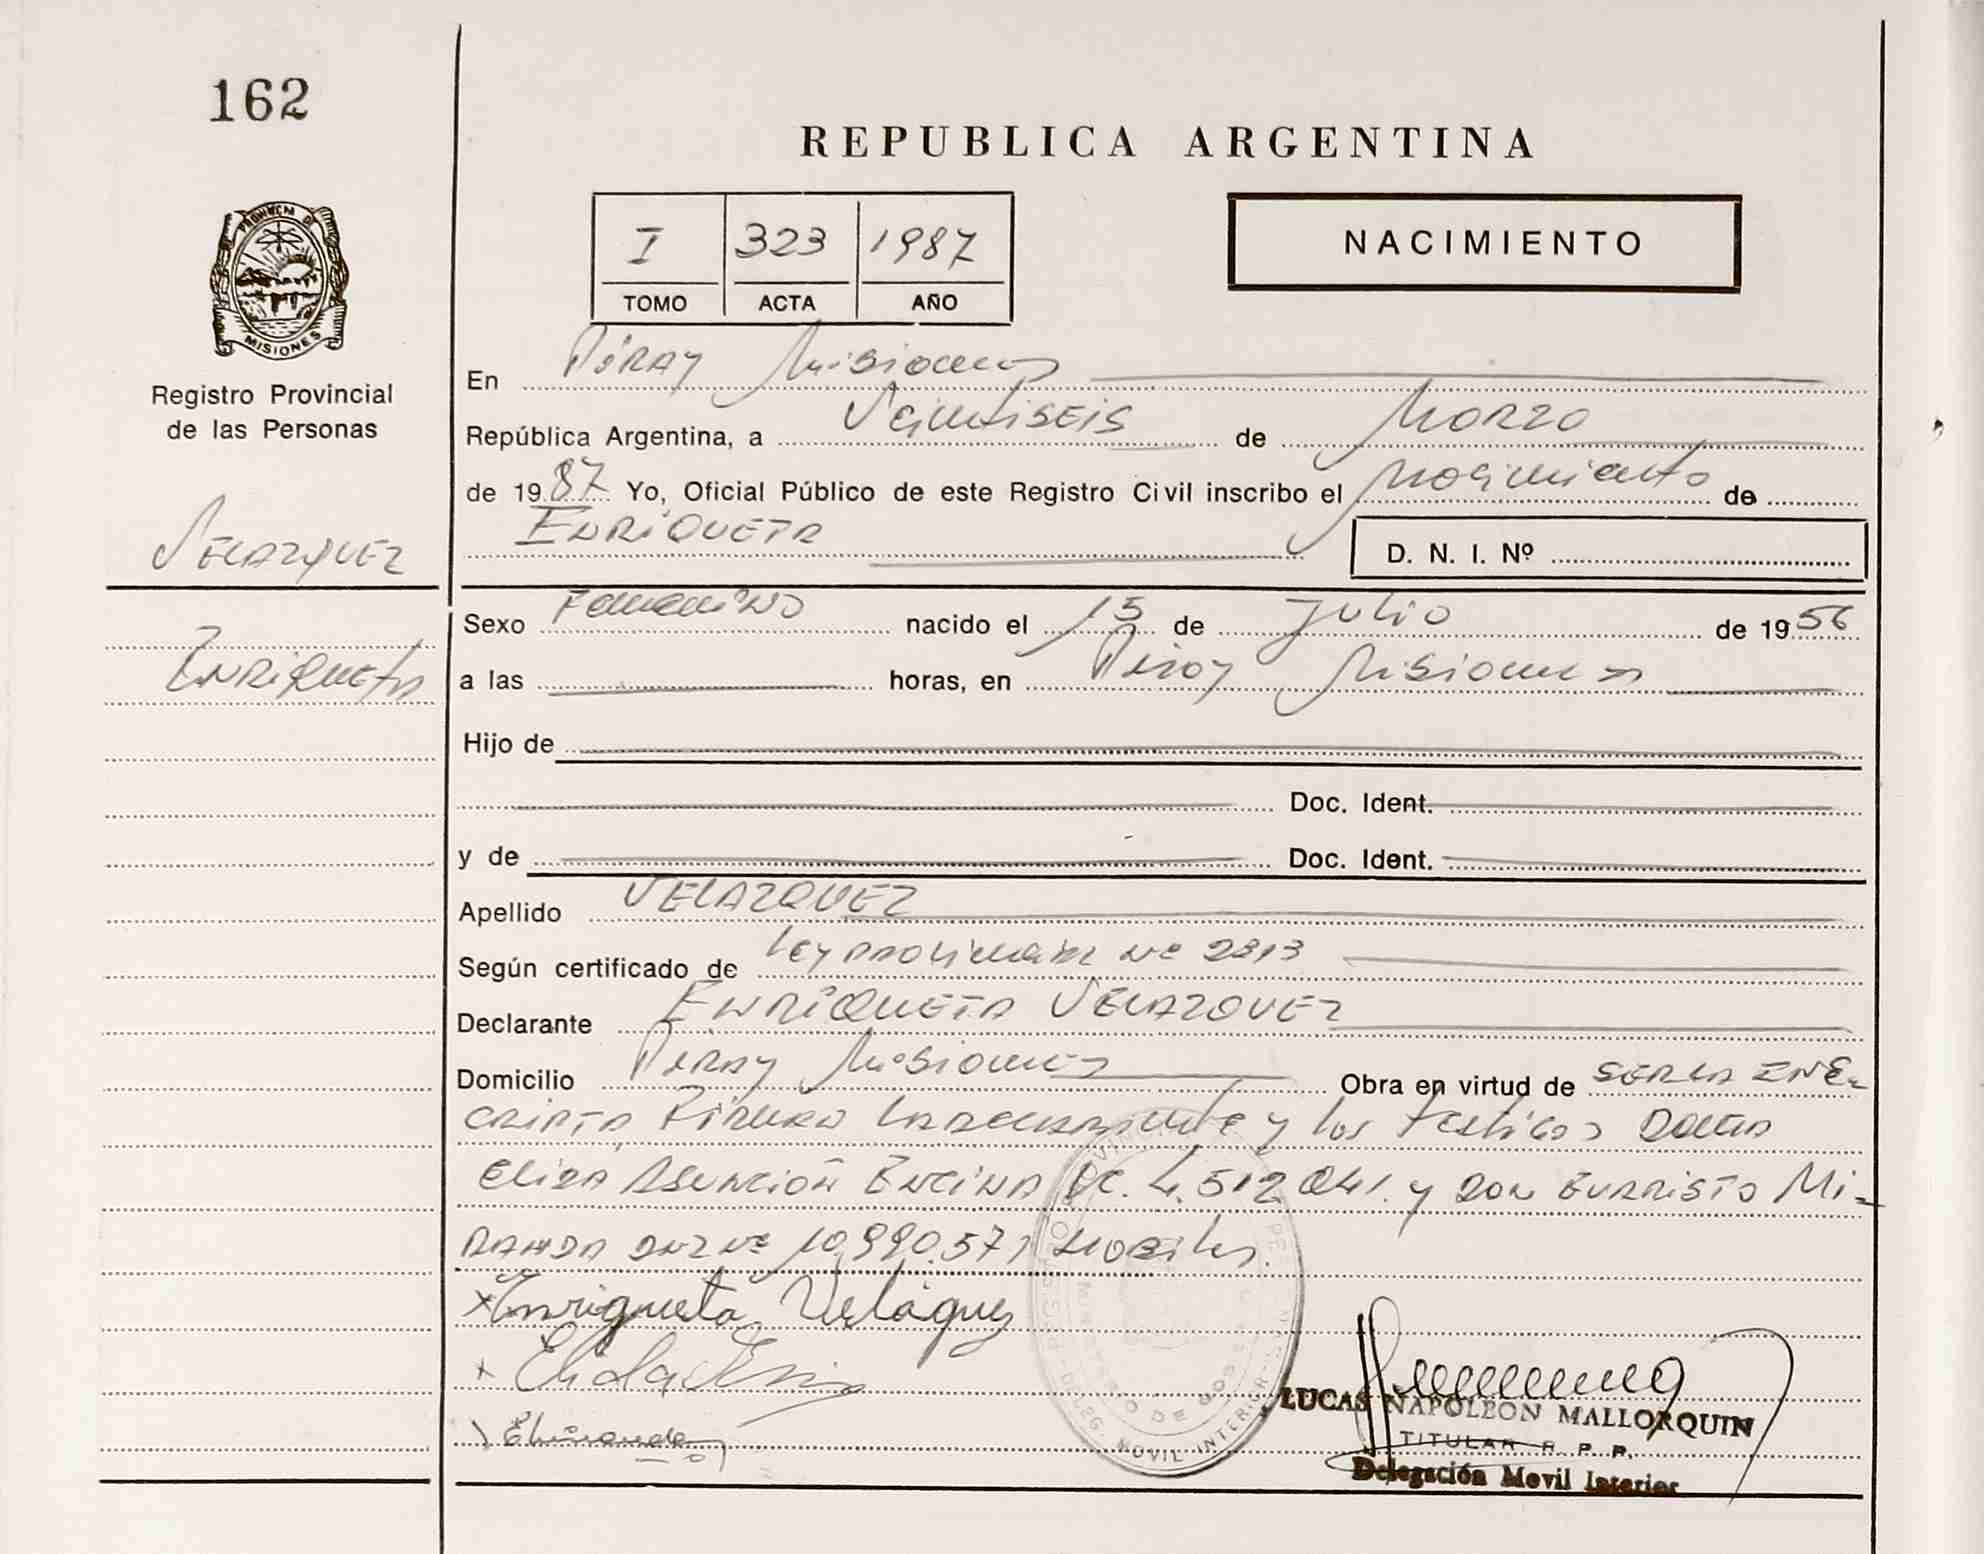 162
REPUBLICA ARGENTINA
PROVINCIA DE
MISIONES
I 323 1987
TOMO ACTA AÑO
NACIMIENTO
Registro Provincial
de las Personas
VELAZQUEZ
ENRIQUETA
En Piray Misiones
República Argentina, a Veintiseis de Marzo
de 1987 Yo, Oficial Público de este Registro Civil inscribo el Nacimiento de
ENRIQUETA
D. N. I. Nº
Sexo Femenino nacido el 15 de Julio de 1956
a las horas, en Piray Misiones
Hijo de
Doc. Ident.
y de Doc. Ident.
Apellido VELAZQUEZ
Según certificado de Ley provincial Nº 2313
Declarante ENRIQUETA VELAZQUEZ
Domicilio Piray Misiones Obra en virtud de SER LA INS-
CRIPTA Firman la declarante y los testigos Doña
Asunción Encina LC. 4.512.041. y Don Evaristo Mi-
RANDA DNI Nº 10.990.571 Hábiles.
x Enriqueta Velázquez
LUCAS NAPOLEON MALLORQUIN
TITULAR R. P. P.
Delegación Movil Interior